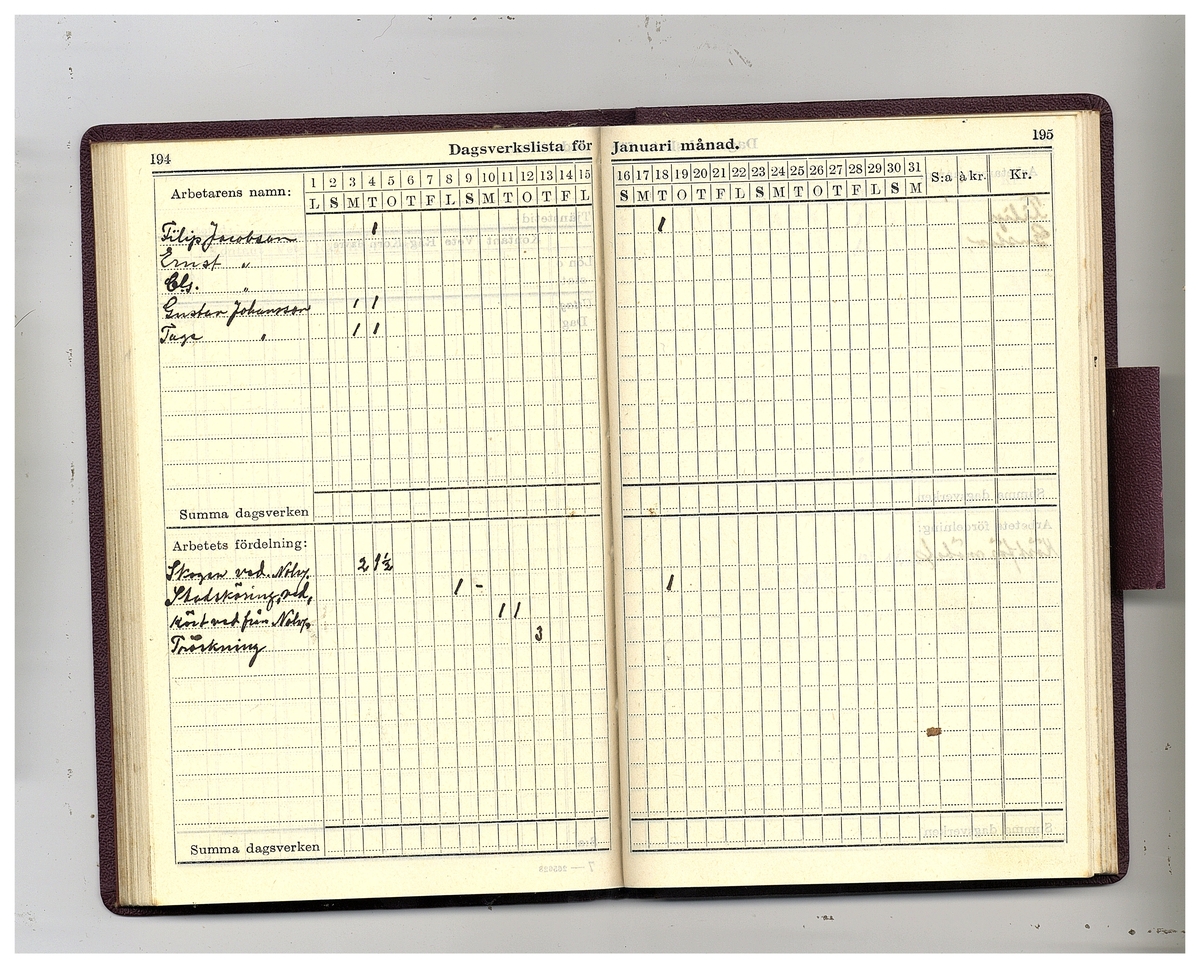 194
Dagsverkslista för Januari månad.
195
Arbetarens namn:
1 2 3 4 5 6 7 8 9 10 11 12 13 14 15 16 17 18 19 20 21 22 23 24 25 26 27 28 29 30 31 S:a à kr. Kr.
L S M T O T F L S M T O T F L S M T O T F L S M T O T F L S M
Filip Jacobsson 1 1
Ernst "
Cls. "
Gustav Johansson 1 1
Tage " 1 1
Summa dagsverken
Arbetets fördelning:
Skogen ved. Nolvg. 2 1½
Stadsköring, ved, 1 - 1
Kört ved från Nolvg. 1 1
Tröskning 3
Summa dagsverken